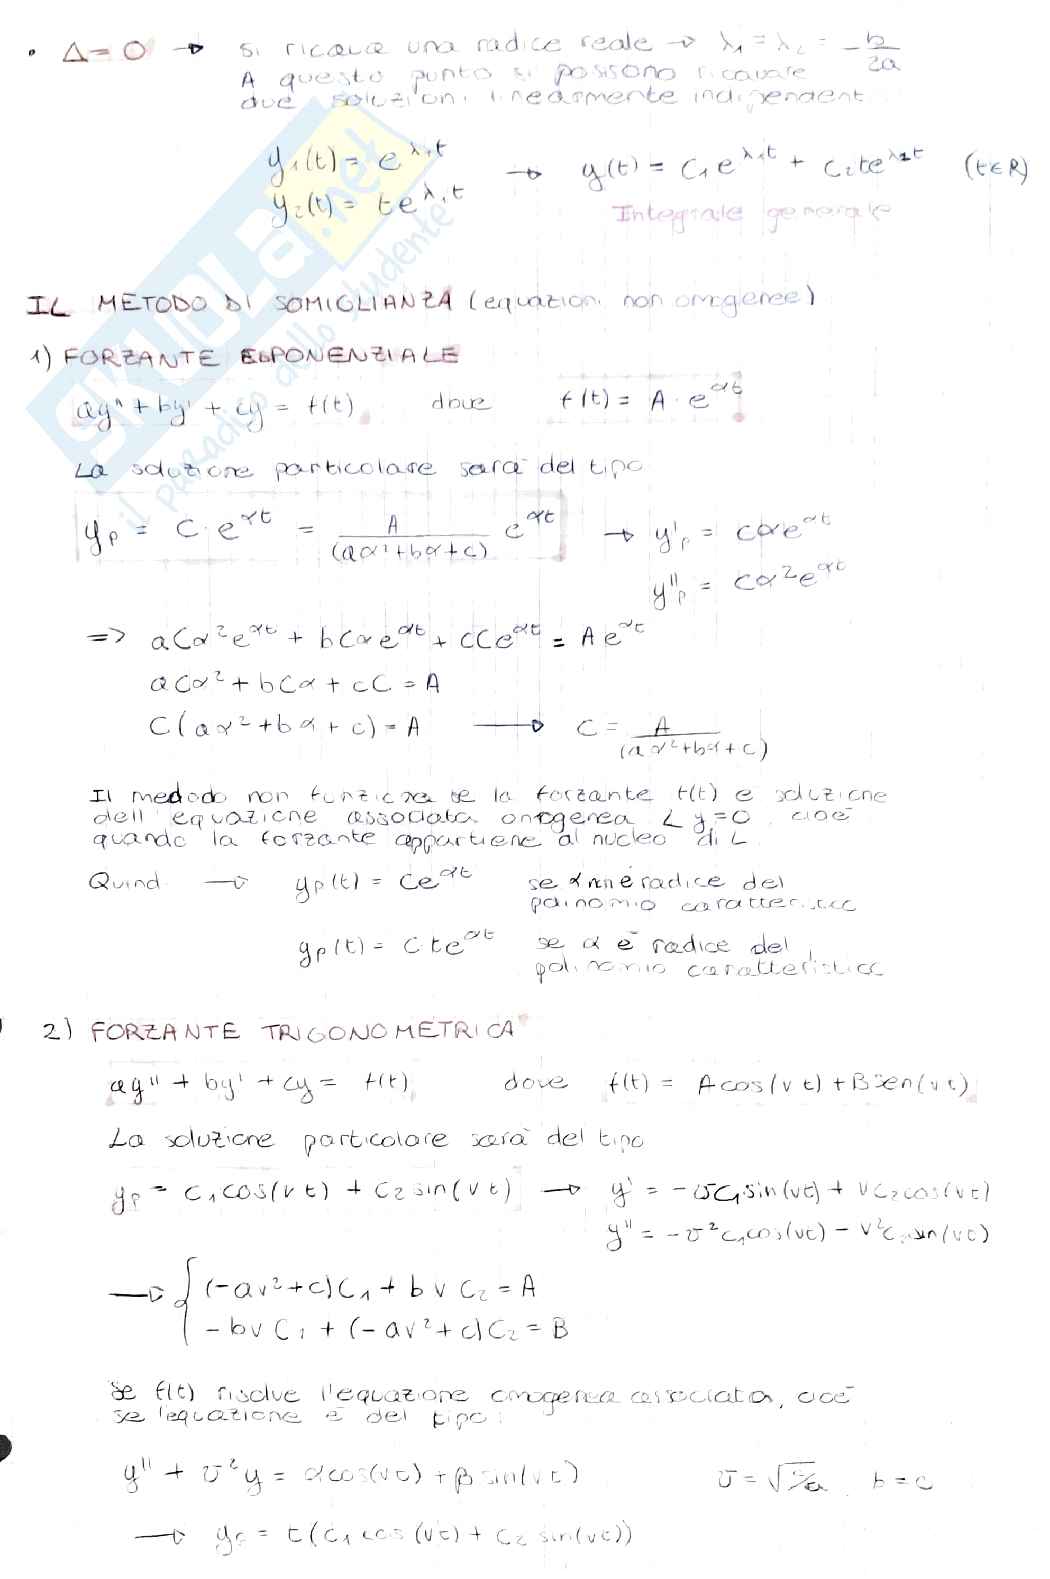 • Δ = 0 → si ricava una radice reale → λ₁ = λ₂ = -b/2a
A questo punto si possono ricavare
due soluzioni linearmente indipendenti
y₁(t) = e^λ₁t
y₂(t) = te^λ₁t → y(t) = C₁e^λ₁t + C₂te^λ₁t (t∈R)
Integrale generale
IL METODO DI SOMIGLIANZA (equazioni non omogenee)
1) FORZANTE ESPONENZIALE
ay'' + by' + cy = f(t) dove f(t) = A · e^αt
La soluzione particolare sarà del tipo
yₚ = C · e^αt = A/(aα²+bα+c) e^αt → y'ₚ = Cαe^αt
y''ₚ = Cα²e^αt
=> aCα²e^αt + bCαe^αt + cCe^αt = Ae^αt
aCα² + bCα + cC = A
C(aα² + bα + c) = A → C = A/(aα²+bα+c)
Il medodo non funziona se la forzante f(t) è soluzione
dell'equazione associata omogenea Ly=0, cioè
quando la forzante appartiene al nucleo di L
Quindi → yₚ(t) = Ce^αt se α non è radice del
polinomio caratteristico
yₚ(t) = Cte^αt se α è radice del
polinomio caratteristico
2) FORZANTE TRIGONOMETRICA
ay'' + by' + cy = f(t) dove f(t) = Acos(vt) + Bsen(vt)
La soluzione particolare sarà del tipo
yₚ = C₁cos(vt) + C₂sin(vt) → y' = -vC₁sin(vt) + vC₂cos(vt)
y'' = -v²C₁cos(vt) - v²C₂sin(vt)
→ { (-av²+c)C₁ + bvC₂ = A
-bvC₁ + (-av²+c)C₂ = B
Se f(t) risolve l'equazione omogenea associata, cioè
se l'equazione è del tipo:
y'' + v²y = αcos(vt) + βsin(vt) v = √c/a b = c
→ yₚ = t(C₁cos(vt) + C₂sin(vt))
SKUOLA.net
il paradiso dello studente